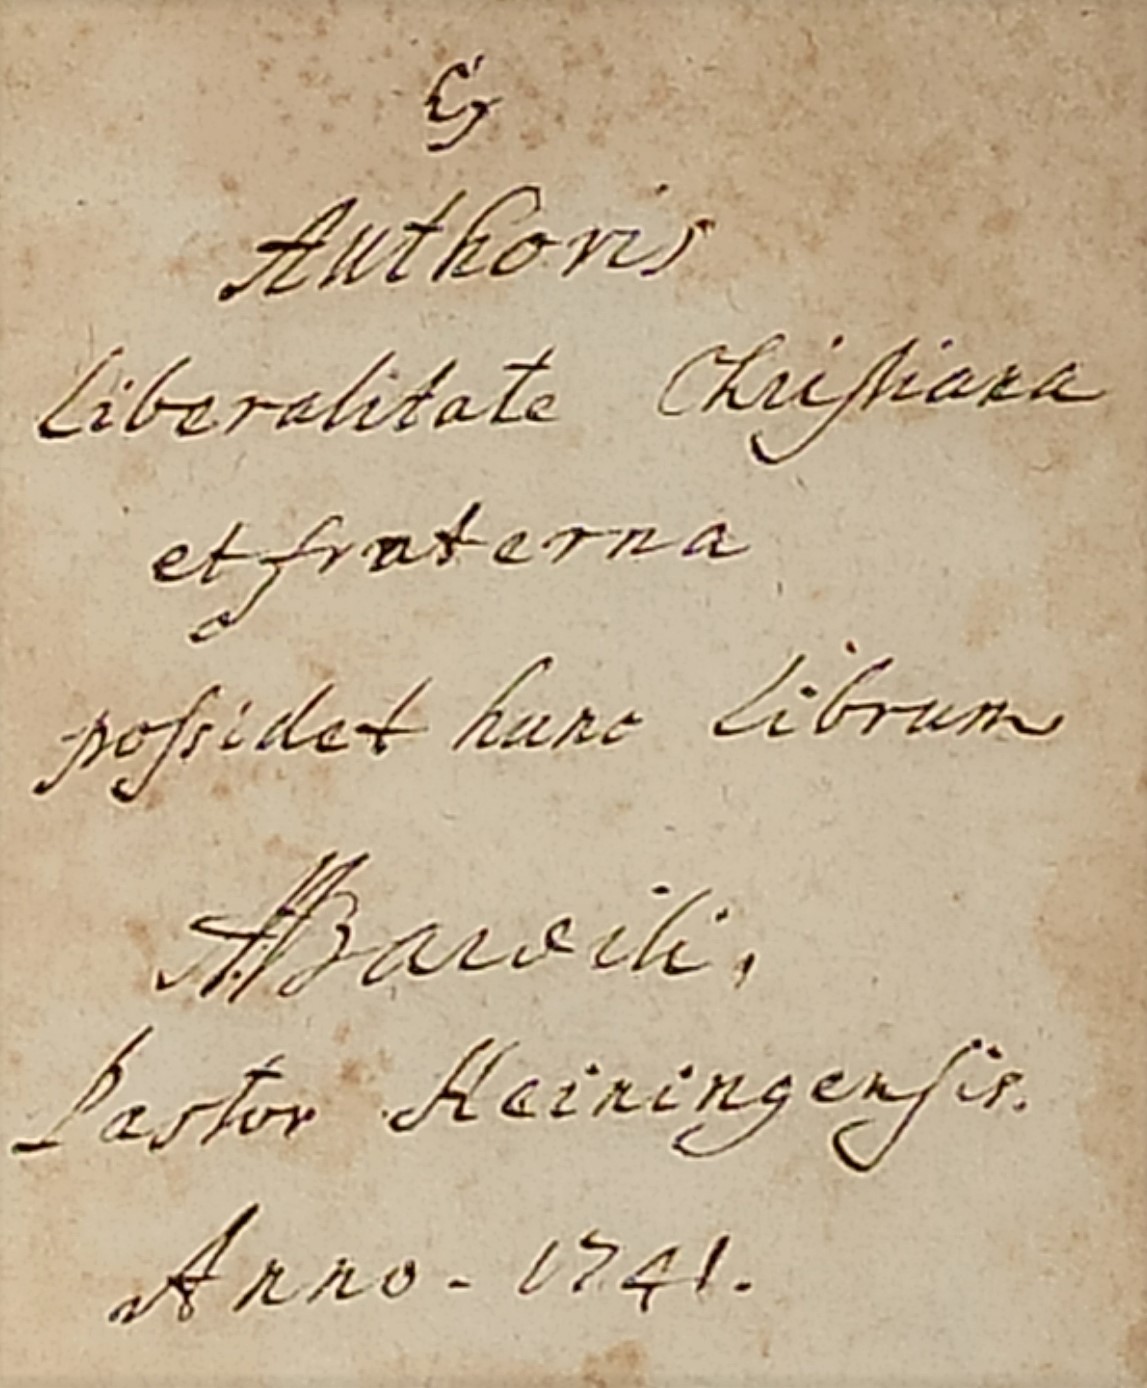 Ex
Authoris
Liberalitate Christiana
et fraterna
possidet hunc Librum
M Bardili,
Pastor Heiningensis.
Anno - 1741.